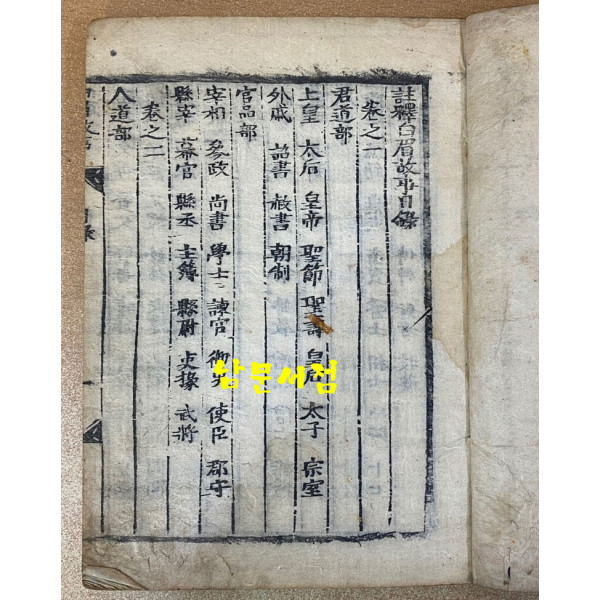 註釋白眉故事目錄
卷之一
君道部
上皇 太后 皇帝 聖節 聖壽 皇后 太子 宗室
外戚 詔書 赦書 朝制
官品部
宰相 參政 尚書 學士 諫官 御史 使臣 郡守
縣宰 幕官 縣丞 主簿 縣尉 吏掾 武將
卷之二
人道部
남문서점